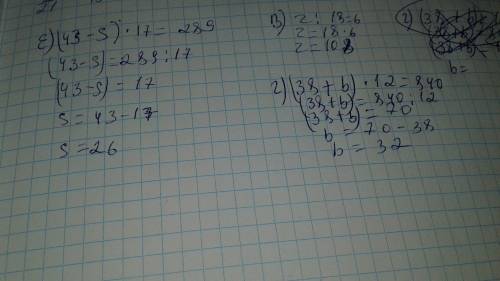 е) (43-s) · 17 = 289
(43-s) = 289 : 17
(43-s) = 17
s = 43-17
s = 26
в) z : 18=6
z = 18·6
z = 108
г) (38 + b)
b=
г) (38 + b) · 12 = 840
(38+b) = 840:12
(38+b) = 70
b = 70-38
b = 32